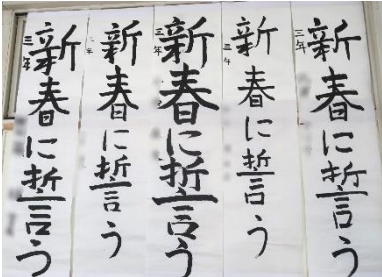 新春に誓う
三年
新春に誓う
三年
新春に誓う
三年
新春に誓う
新春に誓う
三年